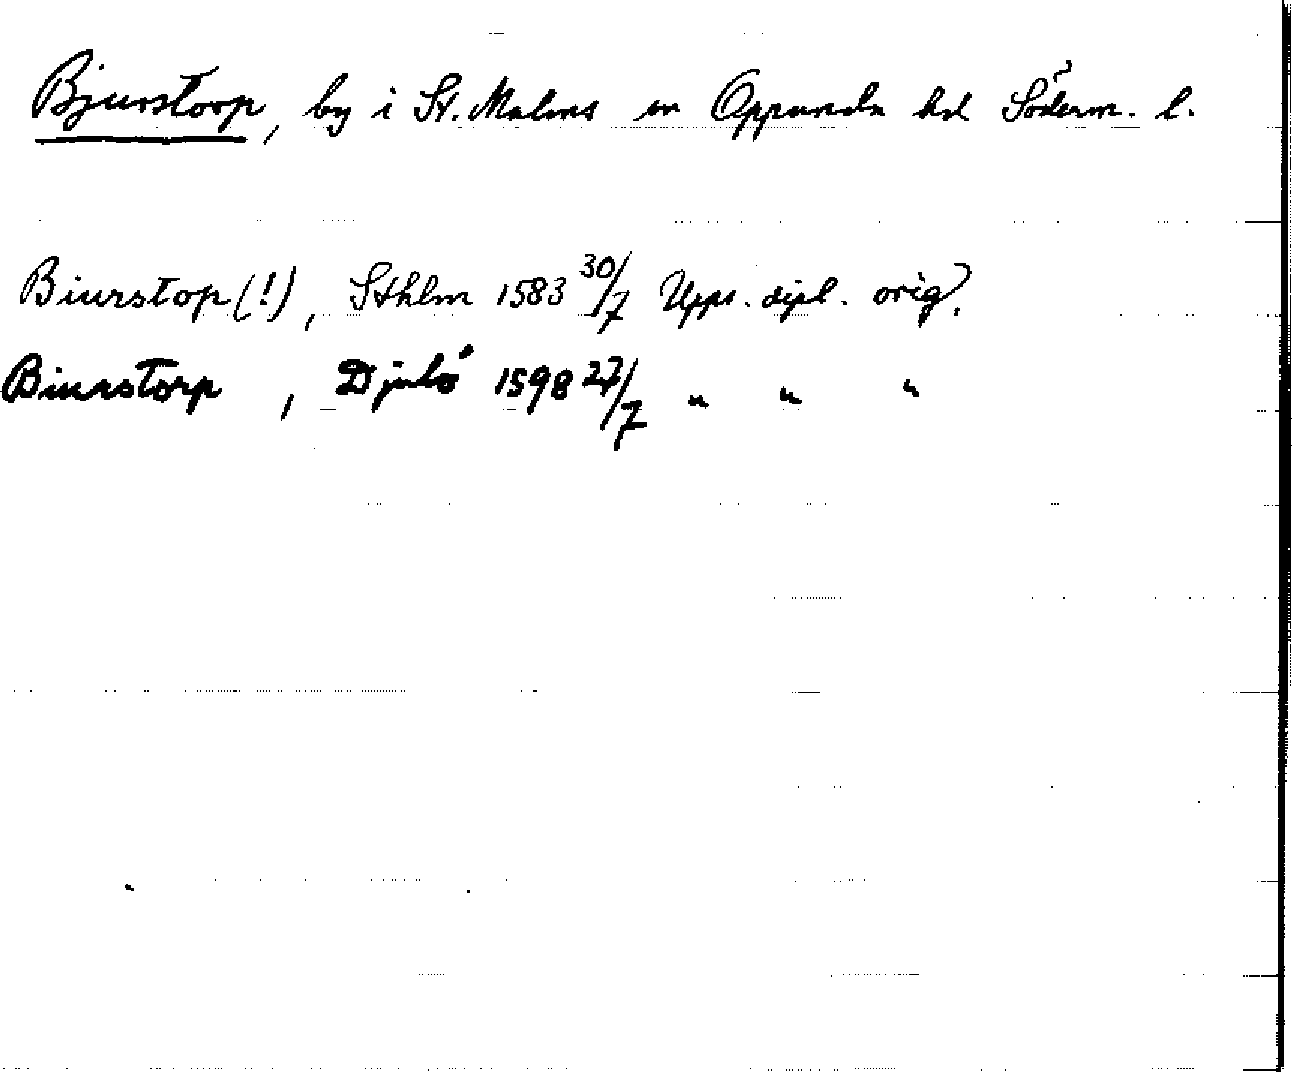 Bjurstorp, by i St. Malms sn Oppunda hd Söderm. l.
Biurstop(!), Sthlm 1583 30/7 Upps. dipl. orig.
Biurstorp , Djulö 1598 27/7 " " "